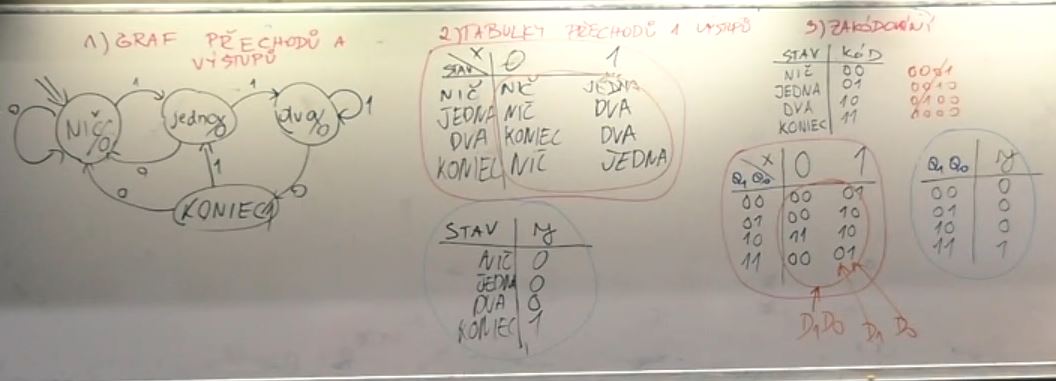 1) GRAF PŘECHODŮ A
VÝSTUPŮ
0
NIČ/0
1
jedno/0
1
dva/0
1
0
0
1
0
KONIEC/1
2) TABULKY PŘECHODŮ A VÝSTUPŮ
X 0 1
STAV
NIČ NIČ JEDNA
JEDNA NIČ DVA
DVA KONIEC DVA
KONIEC NIČ JEDNA
STAV y
NIČ 0
JEDNA 0
DVA 0
KONIEC 1
3) ZAKÓDOVÁNÍ
STAV KÓD
NIČ 00 0001
JEDNA 01 0010
DVA 10 0100
KONIEC 11
X 0 1
Q1 Q0
00 00 01
01 00 10
10 11 10
11 00 01
D1 D0 D1 D0
Q1 Q0 y
00 0
01 0
10 0
11 1